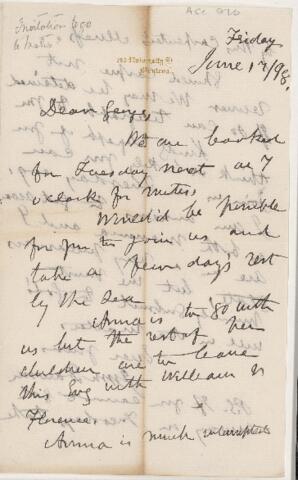 Invitation to go
to Metis
ACC 070
Friday
June 17/98.
Dear Georgy,
We are booked
for Tuesday next at 7
o'clock for Metis,
Would it be possible
for you to join us and
take a few days rest
by the sea
Anna is to go with
us but the rest of her
children are to leave
this Evg with William &
Florence
Anna is much interrupted